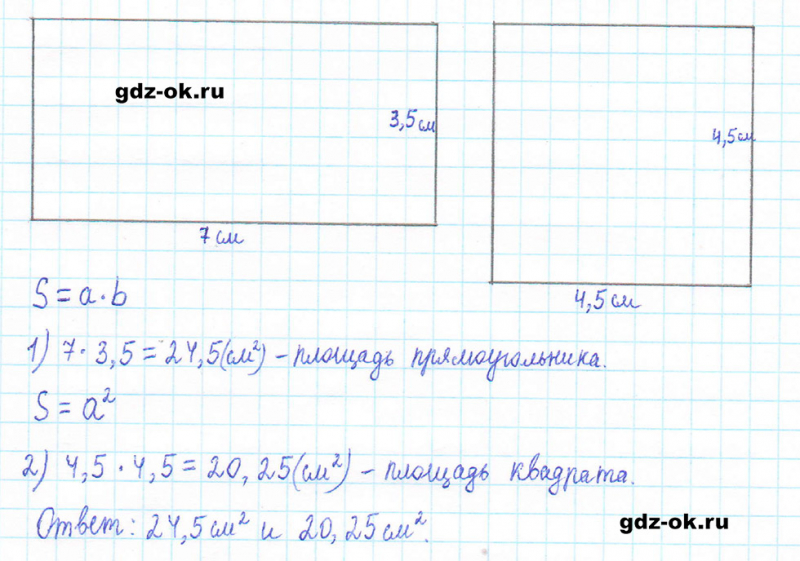 gdz-ok.ru
3,5 см
4,5 см
7 см
4,5 см
S = a · b
1) 7 · 3,5 = 24,5 (см²) – площадь прямоугольника.
S = a²
2) 4,5 · 4,5 = 20,25 (см²) – площадь квадрата.
Ответ: 24,5 см² и 20,25 см².
gdz-ok.ru